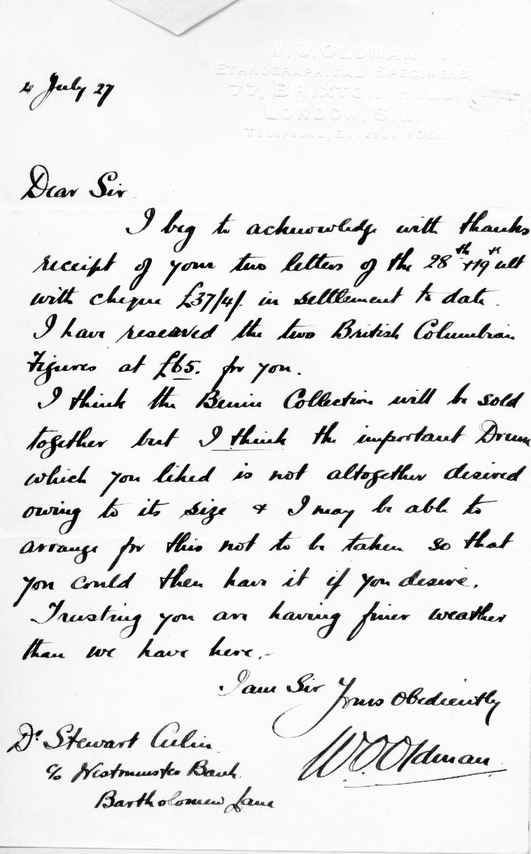 W.O. OLDMAN,
ETHNOGRAPHICAL SPECIMENS,
77, BRIXTON HILL,
LONDON, S.W.
TELEPHONE, BRIXTON 1065.
4 July 27
Dear Sir
I beg to acknowledge with thanks
receipt of your two letters of the 28th + 19th ult
with cheque £37/4/. in settlement to date.
I have reserved the two British Columbian
Figures at £65. for you.
I think the Benin Collection will be sold
together but I think the important Drum
which you liked is not altogether desired
owing to its size & I may be able to
arrange for this not to be taken so that
you could then have it if you desire.
Trusting you are having finer weather
than we have here.-
I am Sir Yours Obediently
WOOldman.
Dr Stewart Culin
c/o Westminster Bank
Bartholomew Lane